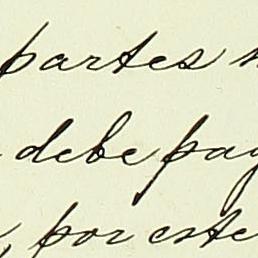 partes
debe pag
, por este